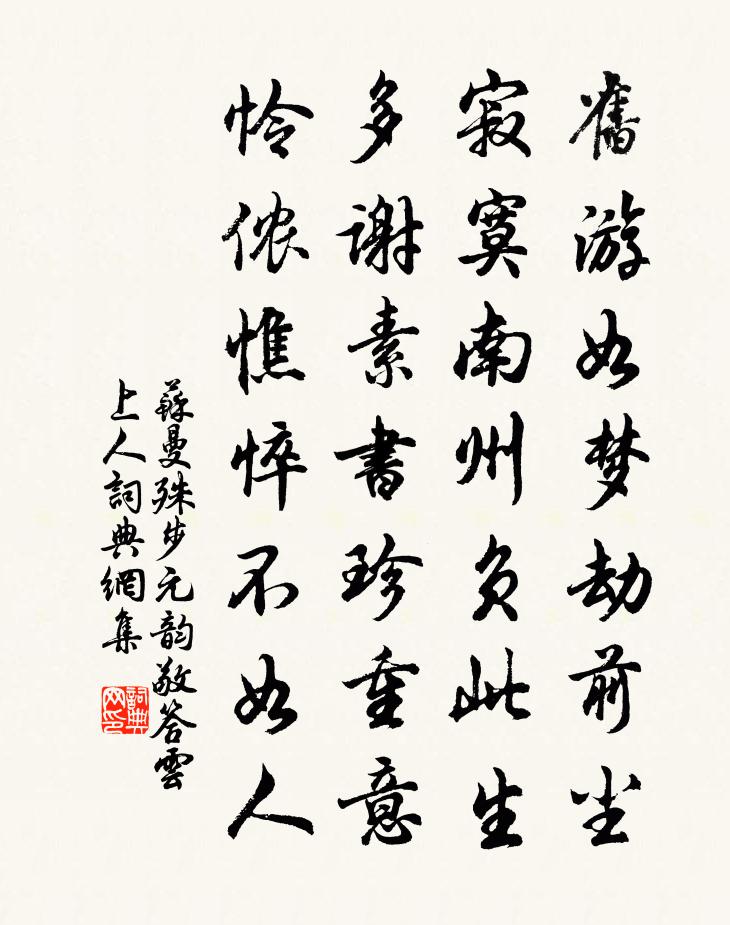 舊游如梦劫前尘
寂寞南州负此生
多谢素書珍重意
怜侬憔悴不如人
蘇曼殊步元韵敬答雲
上人詞典網集
詞典网印